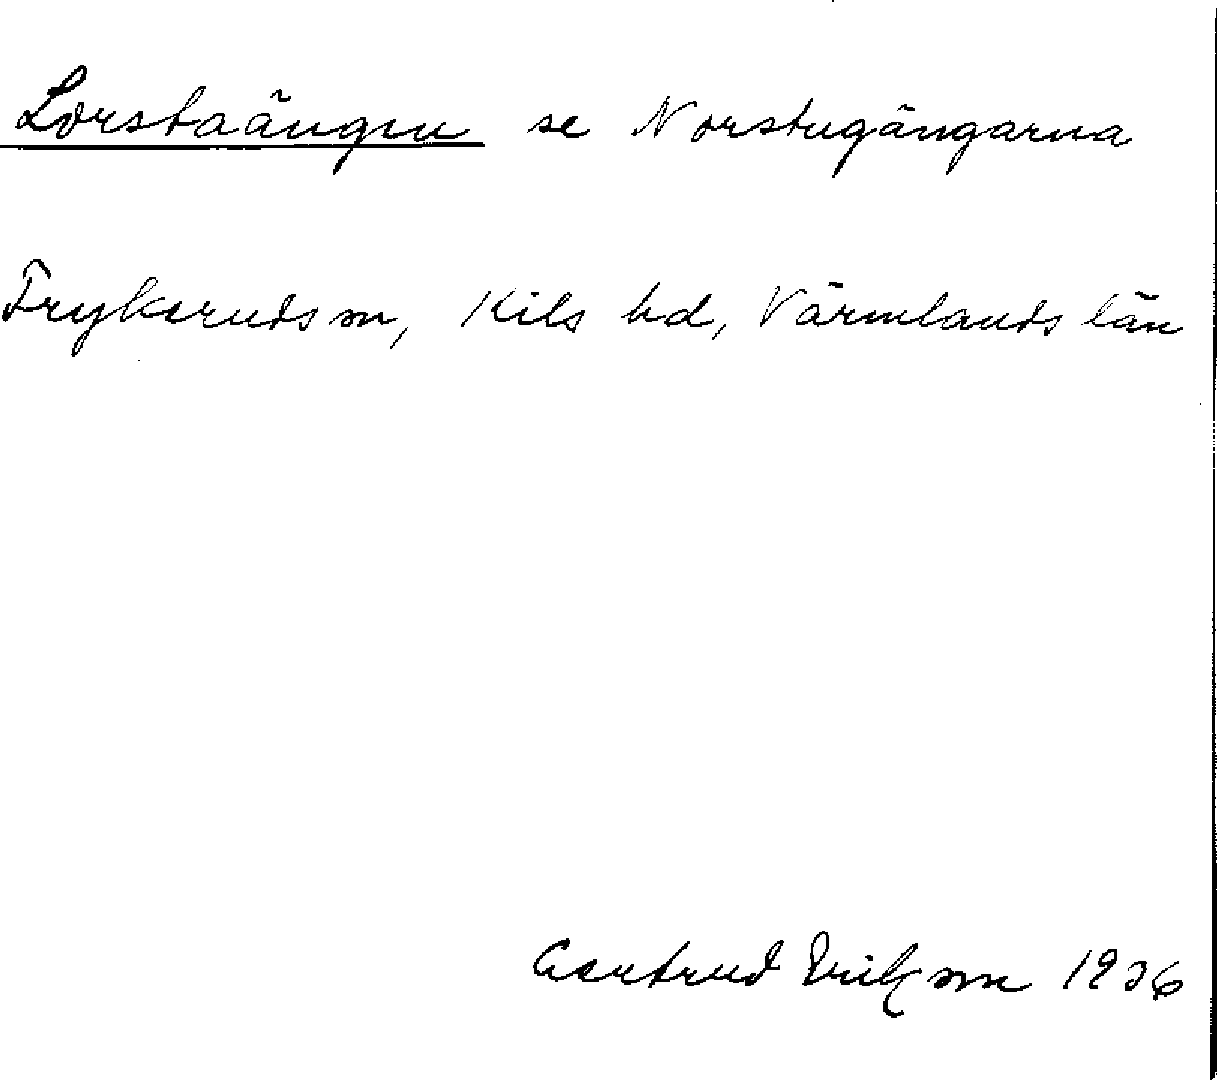 Lorstaängen se Norstugängarna
Frykeruds sn, Kils hd, Värmlands län
Gertrud Erikson 1936